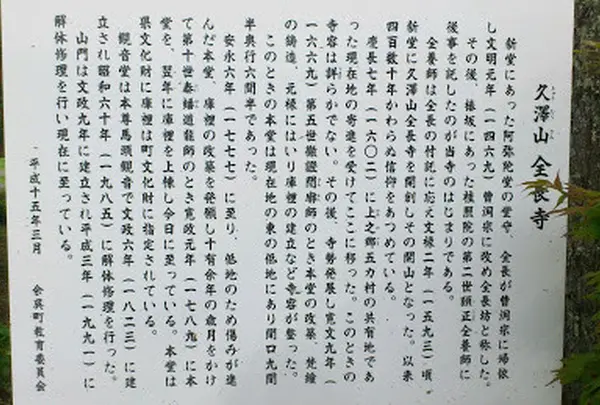 久澤山 全長寺
新堂にあった阿弥陀堂の堂守、全長が曹洞宗に帰依
し文明元年(一四六九)曹洞宗に改め全長坊と称した。
その後、椿坂にあった桂照院の第二世頭正全養師に
後事を託したのが当寺のはじまりである。
全養師は全長の付託に応え文禄二年(一五九三)頃、
新堂に久澤山全長寺を開創しその開山となった。以来
四百数十年かわらぬ信仰をあつめている。
慶長七年(一六〇二)に上之郷五カ村の共有地であ
った現在地の寄進を受けてここに移った。このときの
寺容は詳らかでない。その後、寺勢発展し寛文九年(
一六六九)第五世徹證問廓師のとき本堂の改築、梵鐘
の鋳造、元禄にはいり庫裡の建立など寺容が整った。
このときの本堂は現在地の東の低地にあり間口九間
半奥行六間半であった。
安永六年(一七七七)に至り、低地のため傷みが進
んだ本堂、庫裡の改築を発願し十有余年の歳月をかけ
て第十世泰蟠道龍師のとき寛政元年(一七八九)に本
堂を、翌年に庫裡を上棟し今日に至っている。本堂は
県文化財に庫裡は町文化財に指定されている。
観音堂は本尊馬頭観音で文政六年(一八二三)に建
立され昭和六十年(一九八五)に解体修理を行った。
山門は文政九年に建立され平成三年(一九九一)に
解体修理を行い現在に至っている。
平成十五年三月
余呉町教育委員会